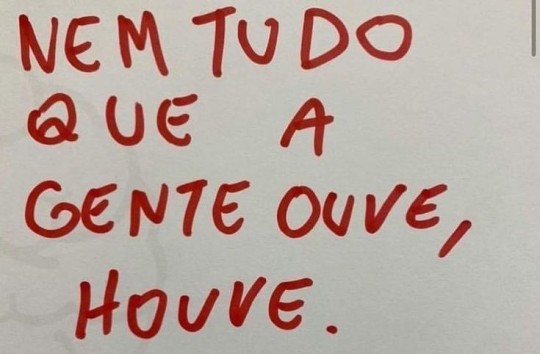 NEM TUDO
QUE A
GENTE OUVE,
HOUVE.